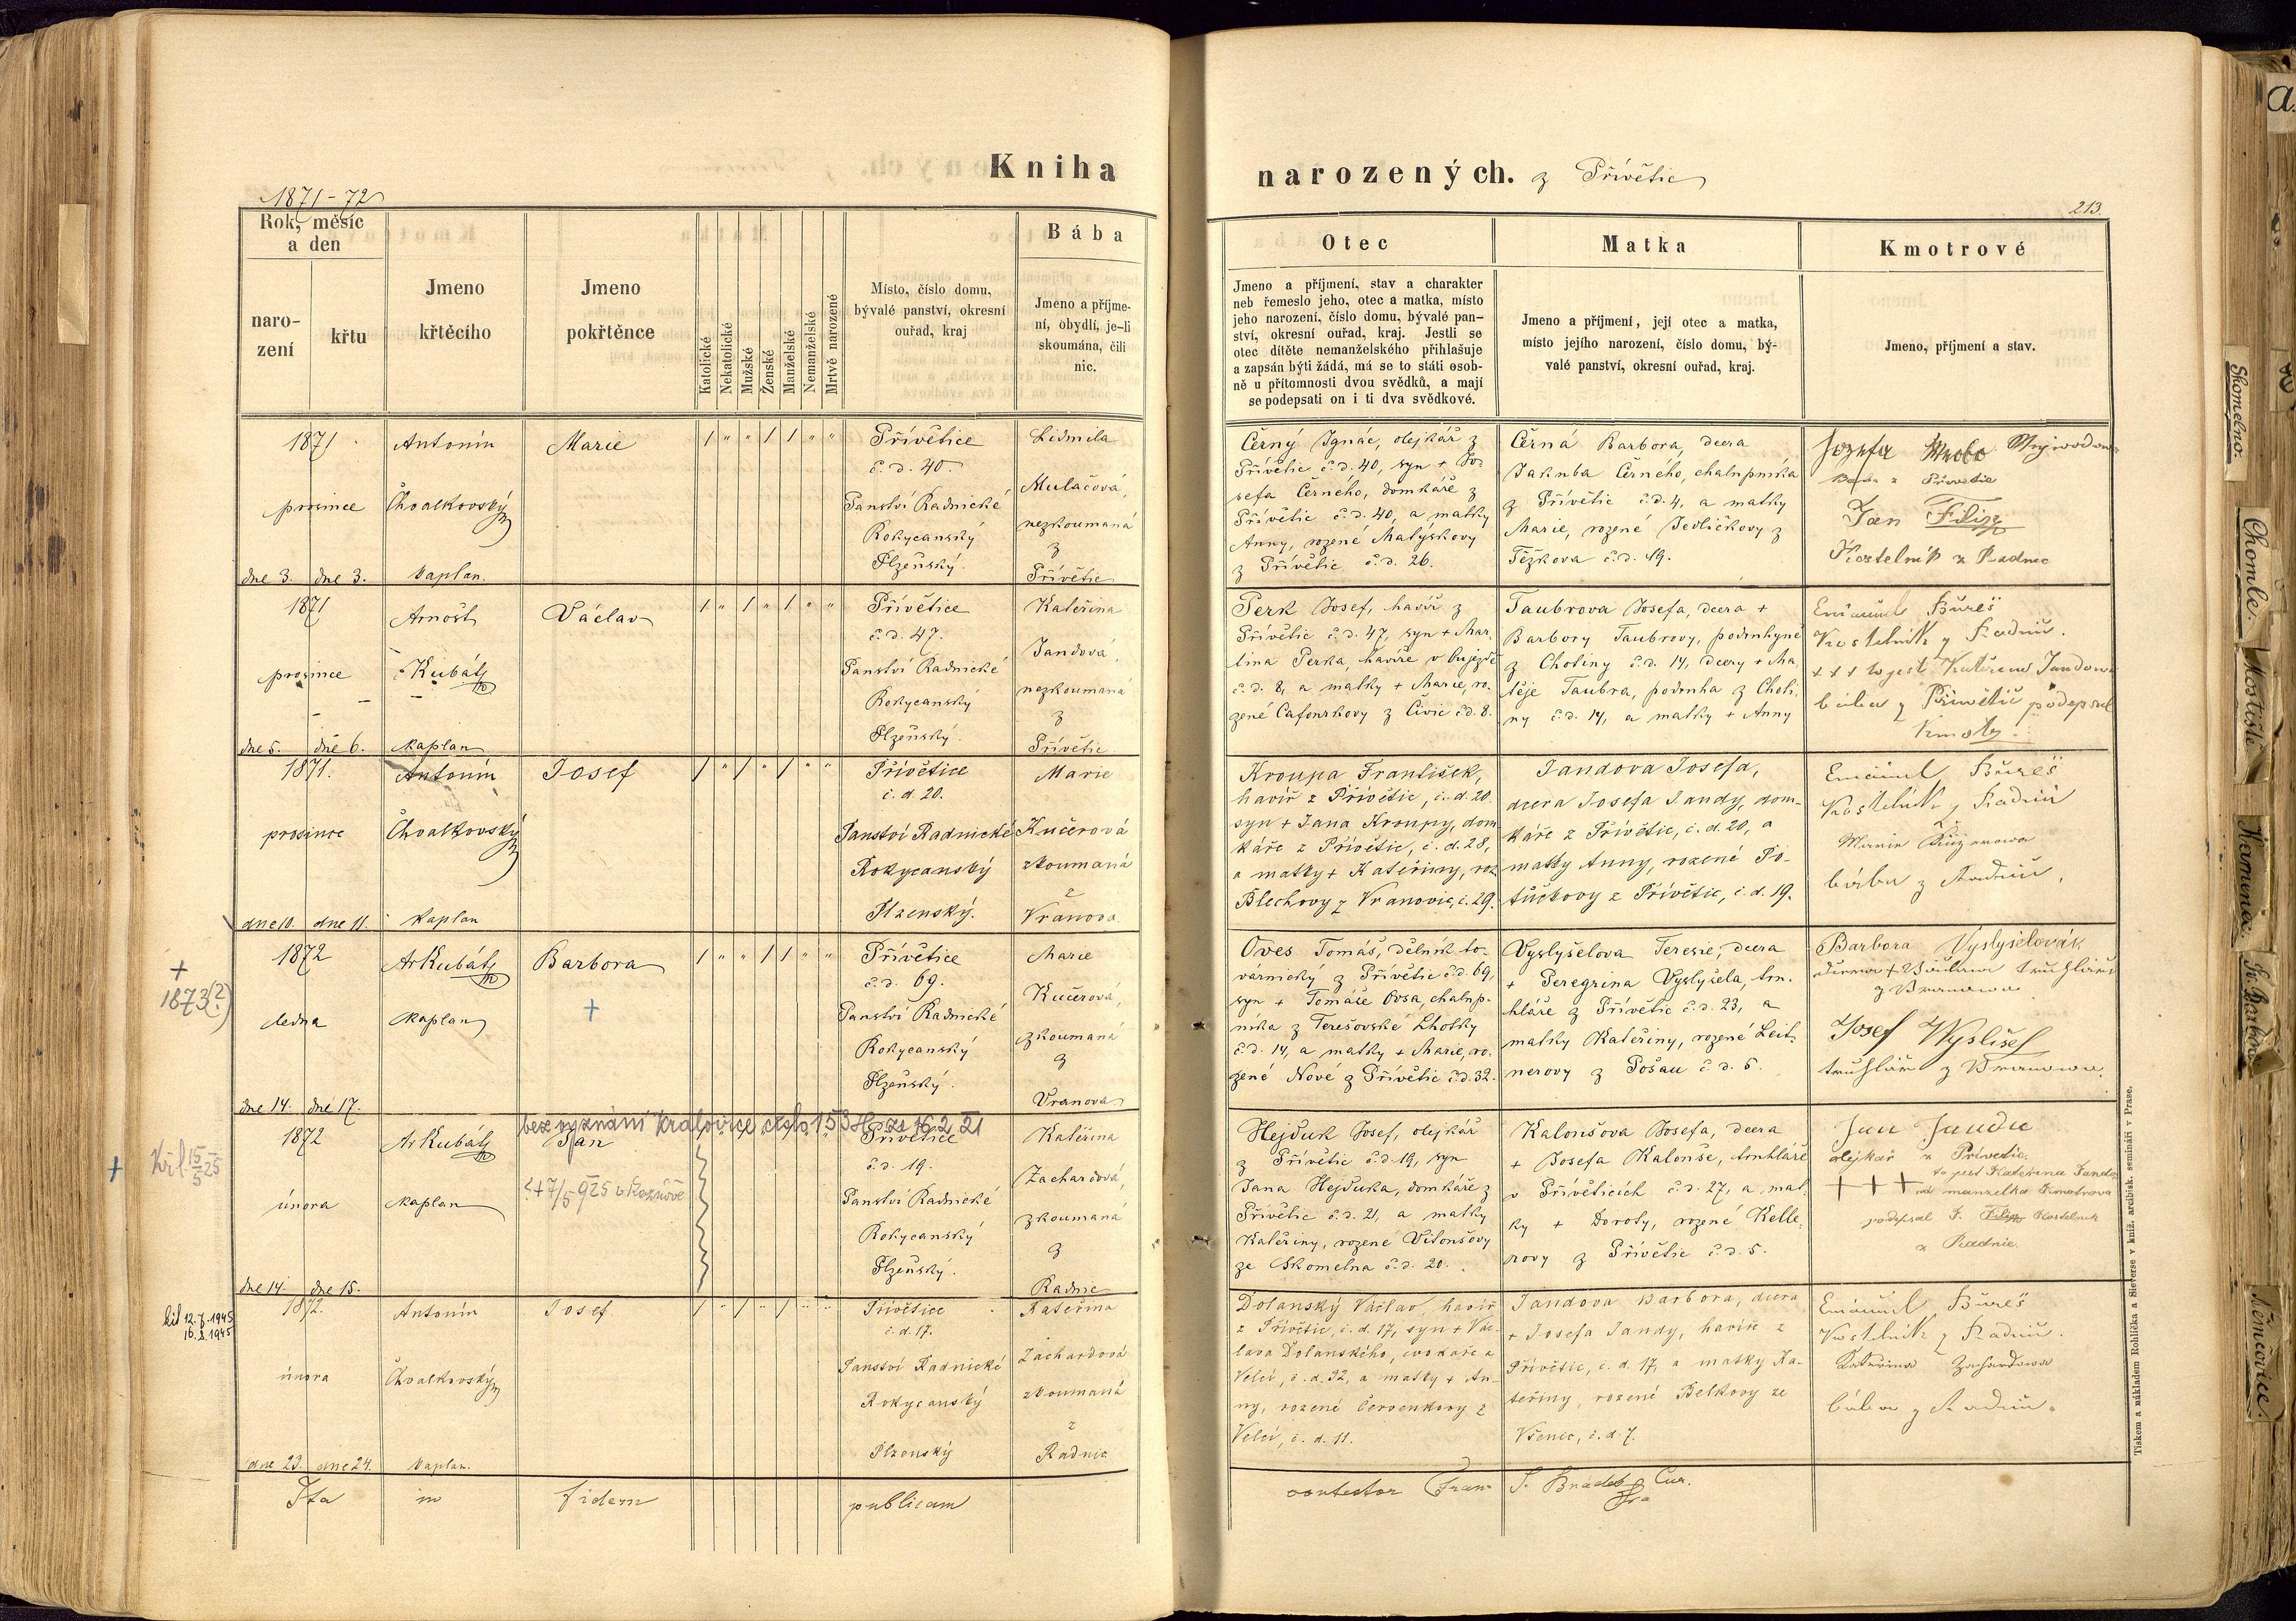 Kniha
narozených. z Přívětic
1871-72
213.
Rok, měsíc
a den
naro-
zení
křtu
Jmeno
křtěcího
Jmeno
pokřtěnce
Katolické
Nekatolické
Mužské
Ženské
Manželské
Nemanželské
Mrtvě narozené
Místo, číslo domu,
bývalé panství, okresní
ouřad, kraj
Bába
Jmeno a příjme-
ní, obydlí, je-li
skoumána, čili
nic.
Otec
Jmeno a příjmení, stav a charakter
neb řemeslo jeho, otec a matka, místo
jeho narození, číslo domu, bývalé pan-
ství, okresní ouřad, kraj. Jestli se
otec dítěte nemanželského přihlašuje
a zapsán býti žádá, má se to státi osob-
ně u přítomnosti dvou svědků, a mají
se podepsati on i ti dva svědkové.
Matka
Jmeno a příjmení, její otec a matka,
místo jejího narození, číslo domu, bý-
valé panství, okresní ouřad, kraj.
Kmotrové
Jmeno, příjmení a stav.
1871
prosince
dne 3. dne 3.
Antonín
Chvalkovský
kaplan.
Marie
1 " " 1 1 " "
Přívětice
č. d. 40.
Panství Radnické
Rokycanský
Plzeňský.
Lidmila
Mulačová,
nezkoumaná
z
Přívětic
Černý Ignác, olejkář z
Přívětic č. d. 40, syn + Jo-
sefa Černého, domkáře z
Přívětic č. d. 40, a matky
Anny, rozené Matýskovy
z Přívětic č. d. 26.
Černá Barbora, dcera
Jakuba Černého, chalupníka
z Přívětic č. d. 4, a matky
Marie, rozené Jedličkovy z
Těškova č. d. 19.
Jozefa
z Přívětic
Jan Filip
Kostelník z Radnic
1871
prosince
dne 5. dne 6.
Arnošt
Kubát
kaplan
Václav
1 " 1 " 1 " "
Přívětice
č. d. 47.
Panství Radnické
Rokycanský
Plzeňský.
Kateřina
Jandová,
nezkoumaná
z
Přívětic
Perk Josef, havíř z
Přívětic č. d. 47, syn + Mar-
tina Perka, havíře v
č. d. 8, a matky + Marie, ro-
zené z Civic č. d. 8.
Taubrova Josefa, dcera +
Barbory Taubrovy, podruhyně
z Chotiny č. d. 14, dcery + Ma-
těje Taubra, podruha z Choti-
ny č. d. 14, a matky + Anny
Emanuel Bureš
Kostelník z Radnic.
+ + + to jest Kateřina Jandova
bába z Přívětic podepsal
Kmotry.
1871.
prosince
dne 10. dne 11.
Antonín
Chvalkovský
kaplan
Josef
1 " 1 " 1 " "
Přívětice
č. d. 20.
Panství Radnické
Rokycanský
Plzenský.
Marie
Kučerová
zkoumaná
z
Vranova
Kroupa František,
havíř z Přívětic, č. d. 20.
syn + Jana Kroupy, dom-
káře z Přívětic, č. d. 28,
a matky + Kateřiny, roz
Blechovy z Vranovic, č. 29.
Jandova Josefa,
dcera Josefa Jandy, dom-
káře z Přívětic, č. d. 20, a
matky Anny, rozené Po-
tůčkovy z Přívětic, č. d. 19.
Emanuel Bureš
Kostelník z Radnic
bába z Radnic,
+
1873(?)
1872
ledna
dne 14. dne 17.
Ar Kubát
kaplan
Barbora
+
1 " " 1 1 " "
Přívětice
č. d. 69.
Panství Radnické
Rokycanský
Plzeňský.
Marie
Kučerová,
zkoumaná
z
Vranova
Oves Tomáš, dělník to-
varnický z Přívětic č. d. 69,
syn + Tomáše Ovsa, chalup-
níka z Terešovské Lhotky
č. d. 14, a matky + Marie, ro-
zené Nové z Přívětic č. d. 32.
Vyslyšelova Teresie, dcera
+ Peregrina Vyslyšela, tru-
hláře z Přívětic č. d. 23, a
matky Kateřiny, rozené Leit-
nerovy z Pošau č. d. 5.
Barbora
dcera + Václava truhláře
z Vranova
Josef Wyslišel
truhlář z Vranova.
bez vyznání Kralovice číslo 153 ze 16 2 21
+
Křl. 15/5 25
1872
února
dne 14. dne 15.
Ar Kubát
kaplan
Jan
+ 7/5 925 v Kaznějově
Přívětice
č. d. 19.
Panství Radnické
Rokycanský
Plzeňský.
Kateřina
Zachardová,
zkoumaná
z
Radnic
Hejduk Josef, olejkář
z Přívětic č. d. 19, syn
Jana Hejduka, domkáře z
Přívětic č. d. 21, a matky
Kateřiny, rozené Vitoušovy
ze Skomelna č. d. 20.
Kaloušova Josefa, dcera
+ Josefa Kalouše, truhláře
v Přívěticích č. d. 27, a mat-
ky + Doroty, rozené Kelle-
rovy z Přívětic č. d. 5.
Jan Janda
olejkař z Přívětic.
to jest Kateřina Janda
+ + + manzelka Kmotrova
podepsal J. Filip Kostelnik
z Radnic.
12.7.1945
16.8.1945
1872.
února
dne 23. dne 24.
Antonín
Chvalkovský
kaplan.
Josef
1 " 1 " 1 " "
Přívětice
č. d. 17.
Panství Radnické
Rokycanský
Plzenský
Kateřina
Zachardová
zkoumaná
z
Radnic
Dolanský Václav, havíř
z Přívětic, č. d. 17, syn + Vác-
lava Dolanského, cvokaře z
Velcí, č. d. 32, a matky + An-
ny, rozené Červenkovy z
Velcí, č. d. 11.
Jandova Barbora, dcera
+ Josefa Jandy, havíře z
Přívětic, č. d. 17, a matky Ka-
teřiny, rozené Belkovy ze
Všenic, č. d. 7.
Emanuel Bureš
Kostelník z Radnic.
Kateřina Zachardowa
bába z Radnic.
Ita in fidem publicam
contestor Franz
Cur.
Tiskem a nákladem Rohlíčka a Sieverse v kníž. arcibisk. semináři v Praze.
Skomelno.
Chomle.
Mostiště
Kamenec.
Sv. Barbora
Němčovice.